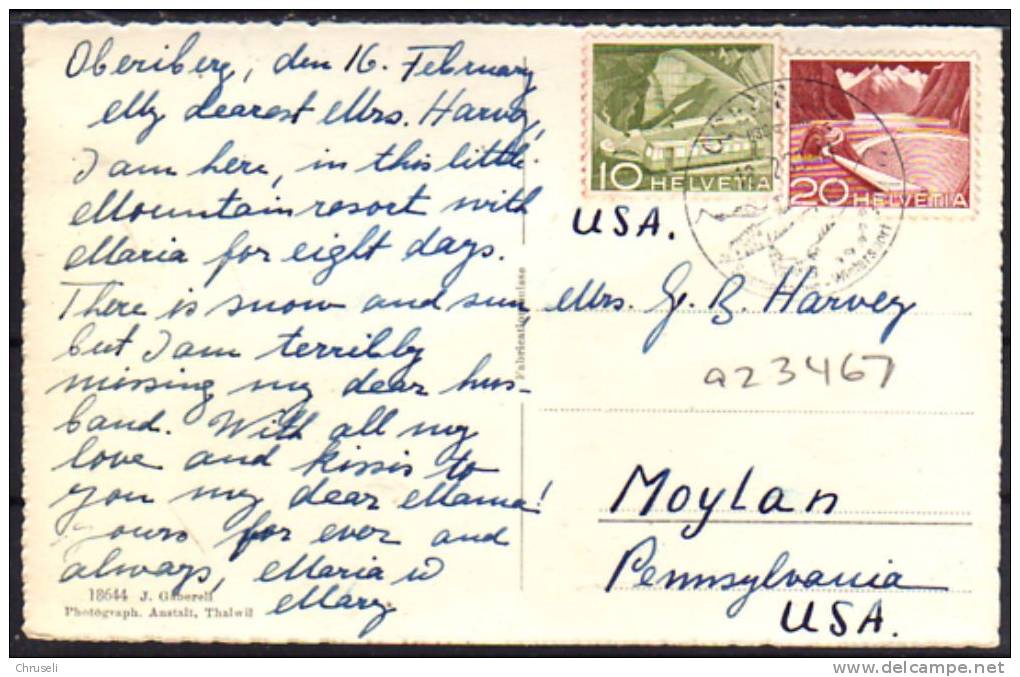 Oberiberg, den 16. February
My dearest Mrs. Harvey,
I am here, in this little
Mountain resort with
Maria for eight days.
There is snow and sun,
but I am terribly
missing my dear hus-
band. With all my
love and kissis to
you my dear Mama!
Yours for ever and
always, Maria u
Mary
18644 J. Gaberell
Photograph. Anstalt, Thalwil
Fabrication suisse
10 HELVETIA
20 HELVETIA
Wintersport
USA.
Mrs. G. B. Harvey
a23467
Moylan
Pennsylvania
USA.
Chruseli
delcampe.net